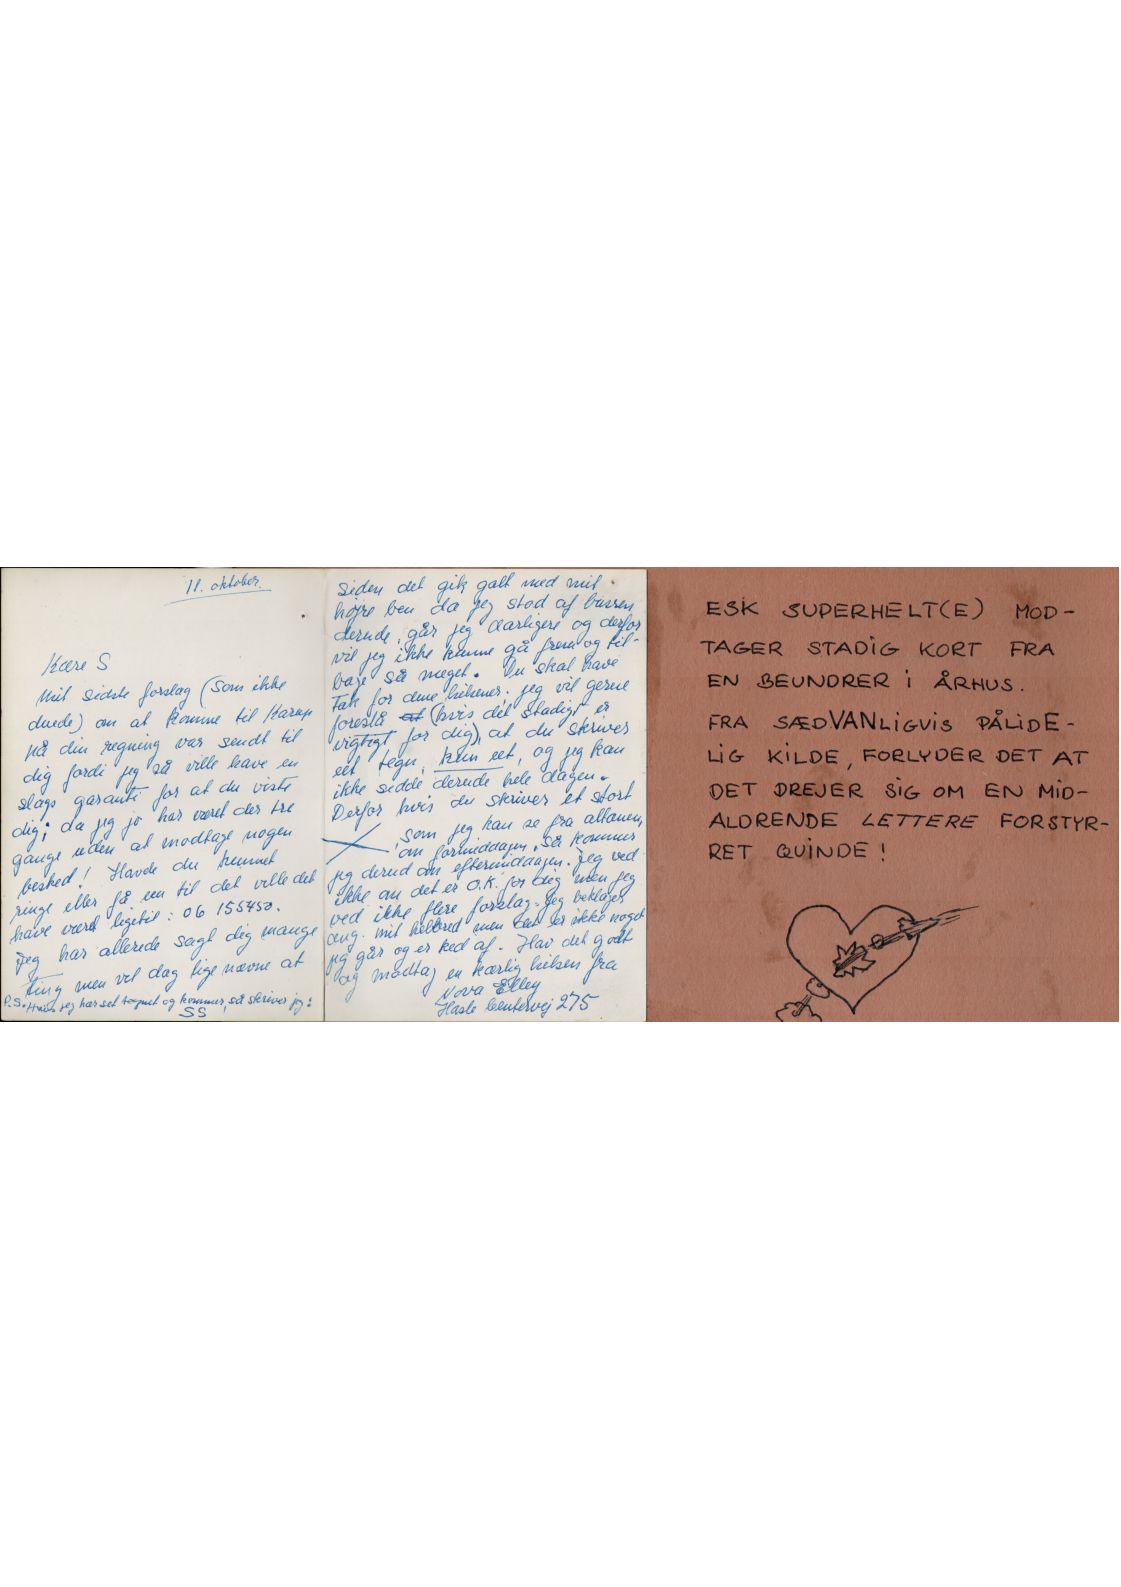 11. oktober.
Kære S
Mit sidste forslag (som ikke
duede) om at komme til Karup
på din regning var sendt til
dig fordi jeg så ville have en
slags garanti for at du viste
dig; da jeg jo har været der tre
gange uden at modtage nogen
besked! Havde du kunnet
ringe eller få en til det ville det
have været ligetil: 06 155450.
Jeg har allerede sagt dig mange
ting men vil dag lige nævne at
P.S. Hvis jeg har set tegnet og kommer, så skriver jeg:
SS
siden det gik galt med mit
højre ben da jeg stod af bussen
derude, går jeg dårligere og derfor
vil jeg ikke kunne gå frem og til-
bage så meget. Du skal have
tak for dine hilsener. Jeg vil gerne
foreslå at (hvis det stadigt er
vigtigt for dig), at du skriver
eet tegn, kun eet, og jeg kan
ikke sidde derude hele dagen.
Derfor hvis du skriver et stort
X, som jeg kan se fra altanen,
om formiddagen, så kommer
jeg derud om eftermiddagen. Jeg ved
ikke om det er O.K. for dig men jeg
ved ikke flere forslag. Jeg beklager
ang. mit helbred men det er ikke noget
jeg går og er ked af. Hav det godt
og modtag en kærlig hilsen fra
Nova Elley
Hasle Centervej 275
ESK SUPERHELT(E) MOD-
TAGER STADIG KORT FRA
EN BEUNDRER I ÅRHUS.
FRA SÆDVANLIGVIS PÅLIDE-
LIG KILDE, FORLYDER DET AT
DET DREJER SIG OM EN MID-
ALDRENDE LETTERE FORSTYR-
RET QUINDE!